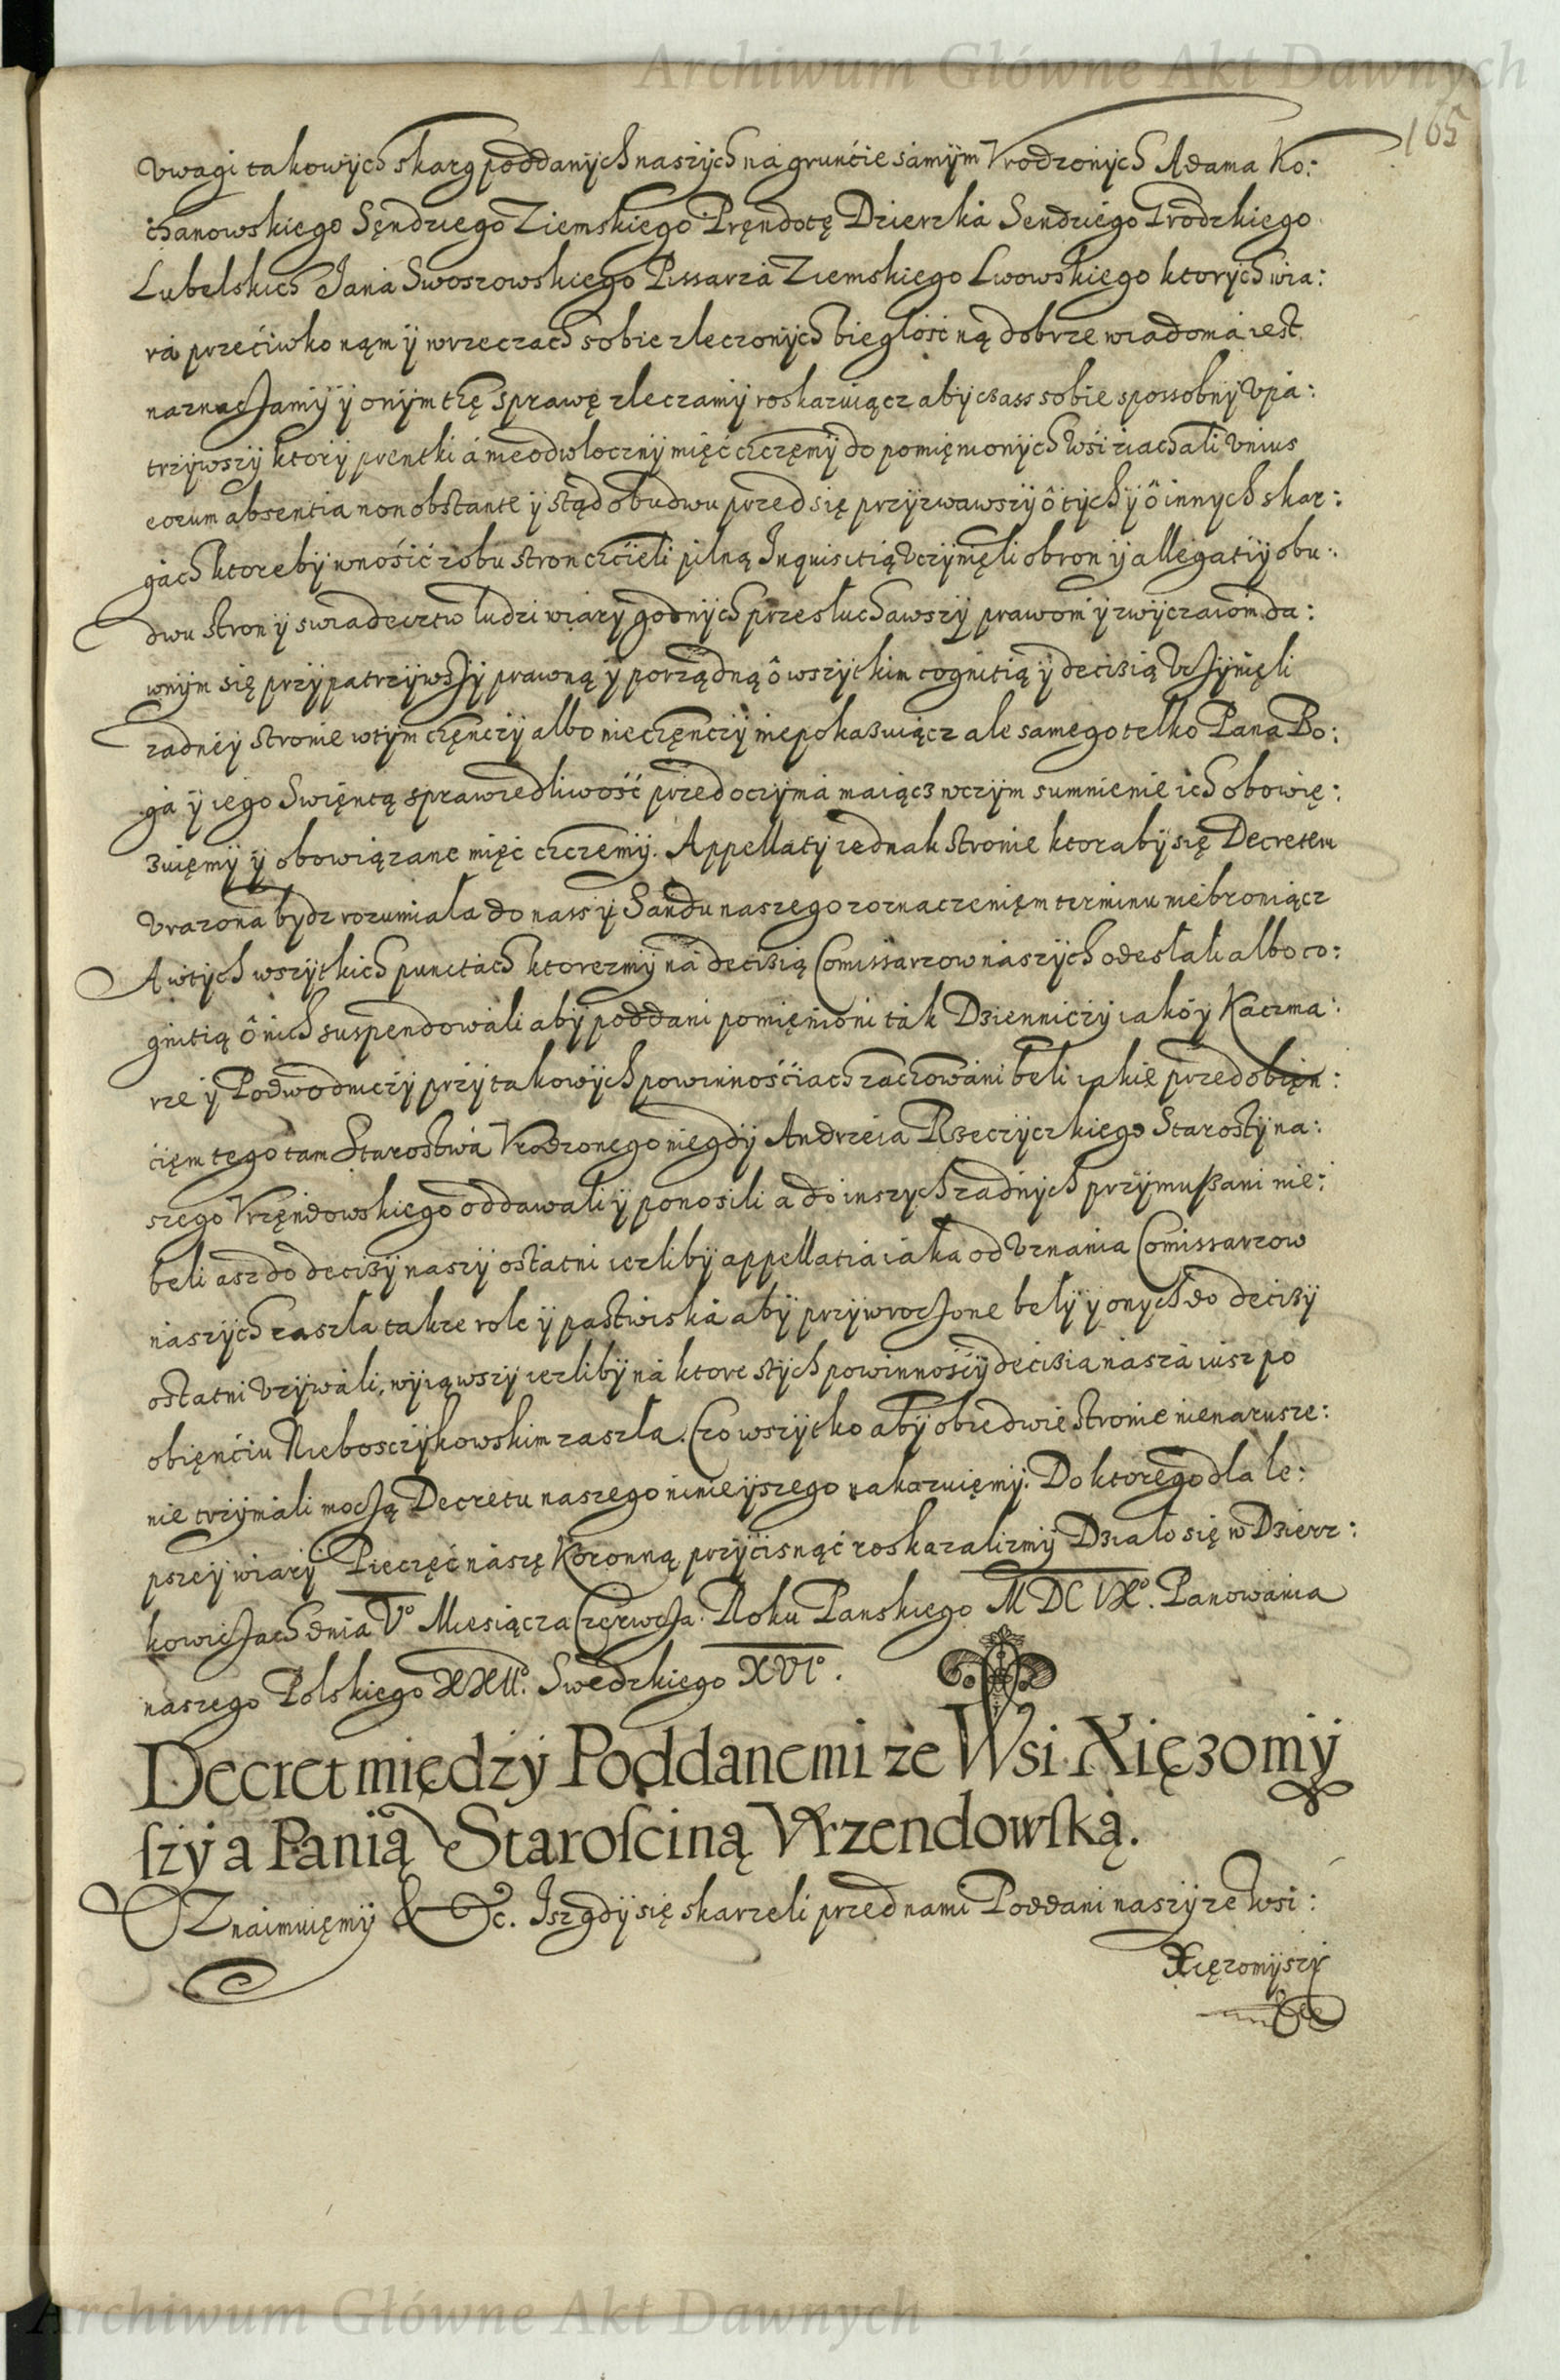 Archiwum Główne Akt Dawnych
165
Vwagi takowych skarg poddanych naszych na grunćie samym Vrodzonych Adama Ko:
chanowskiego Sęndziego Ziemskiego Pręndotę Dzierzka Sendziego Grodzkiego
Lubelskich Jana Swoszowskiego Pissarza Ziemskiego Lwowskiego ktorych wia:
ra przećiwko nąm y w rzeczach sobie zleczonych biegłość ną dobrze wiadoma iest
naznaczamy y onym thę sprawę zleczamy roskazuiącz aby czass sobie spossobny vpa:
trzywszy ktory prentki a nieodwłoczny mięć chczęmy do pomięnionych wśi ziachali Vnius
eorum absentia non obstante y stąd obudwu przed się przyzwawszy o tych y o innych skar:
gach ktoreby wnośić z obu stron chcieli pilną Inquisitią vczynięli obron y allegatiy obu:
dwu stron y swiadecztw ludzi wiary godnych przesłuchawszy prawom y zwyczaiom da:
wnym się przypatrzywszy prawną y porządną o wszytkim cognitią y decisią vczynięli
zadney stronie w tym chęnczy albo niechęnczy niepokazuiącz ale samego telko Pana Bo:
ga y iego Swięntą sprawiedliwość przed oczyma maiącz w czym sumnienie ich obowię:
zuięmy y obowiązane mięć chczemy. Appellaty iednak stronie ktoraby się Decretem
vrazona bydz rozumiała do nass y Sandu naszego z oznaczenięm terminu niebroniącz
A w tych wszytkich punctach ktorezmy na decisią Comissarzow naszych odesłali albo co:
gnitią o nich suspendowali aby poddani pomięnioni tak Dzienniczy iako y Kaczma:
rze y Podwodniczy przy takowych powinnościach zachowani beli iakie przed obięn:
cięm tego tam Starostwa Vrodzonego niegdy Andrzeia Rzeczyczkiego Starosty na:
szego Vrzęndowskiego oddawali y ponosili a do inszych zadnych przymuszani nie:
beli asz do decisy naszy ostatni iezliby appellatia iaka od vznania Comissarzow
naszych zaszła takze role y pastwiska aby przywroczone bely y onych do decisy
ostatni vzywali, wyiąwszy iezliby na ktore s tych powinnośćy decisia nasza iusz po
obięnćiu Nieboszczykowskim zaszła. Czo wszytko aby obiedwie stronie nienarusze:
nie trzymali moczą Decretu naszego ninieyszego nakazuięmy. Do ktorego dla le:
pszey wiary Pieczęć naszę Koronną przycisnąć roskazalizmy Działo się w Dzierz:
kowiczach dnia Vº Miesiącza Czerwcza. Roku Panskiego M DC IXº. Panowania
naszego Polskiego XXIIº. Swedzkiego XVIº.
Decret między Poddanemi ze Wsi Xięzomy
szy a Panią Starosciną Vrzendowską.
Oznaimuięmy &c. Isz gdy się skarzeli przed nami Poddani naszy ze wsi:
Xięzomyszy
Archiwum Główne Akt Dawnych